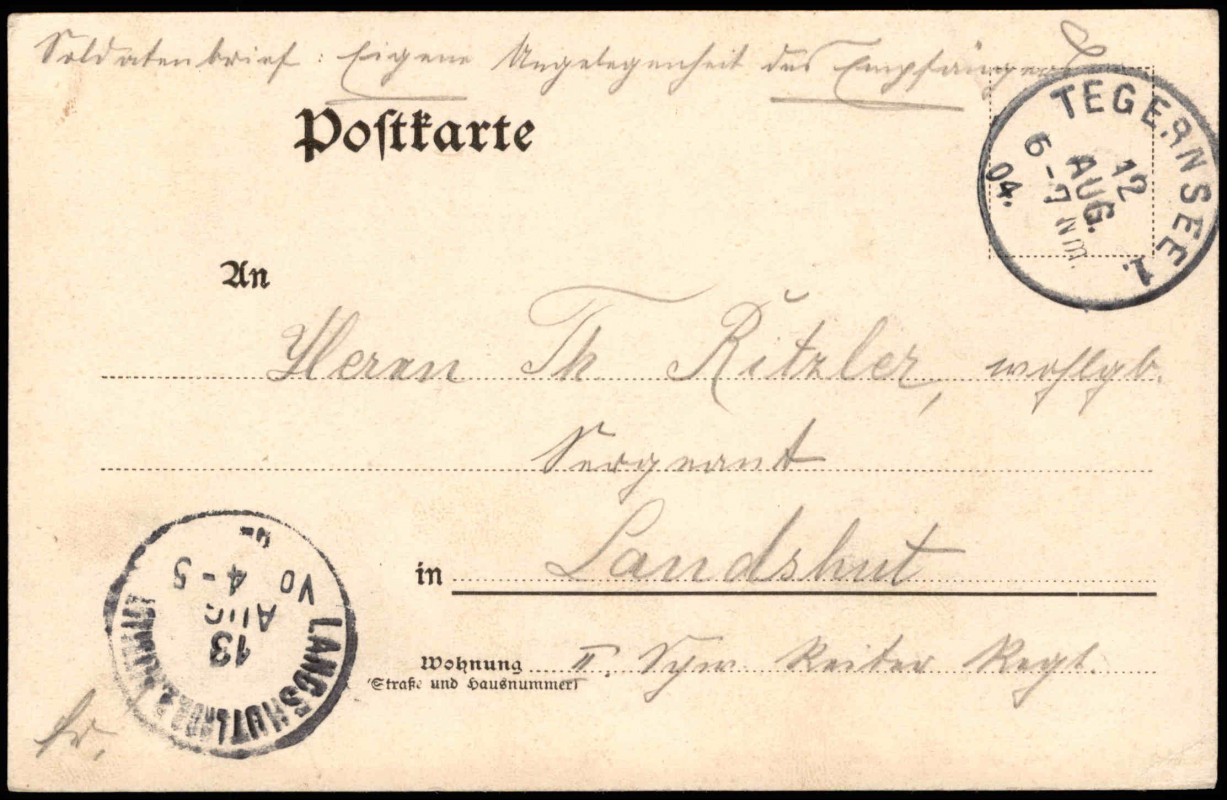 Soldatenbrief: Eigene Angelegenheit des Empfängers
Postkarte
TEGERNSEE 1.
12
AUG.
6-7 Nm.
04.
An
Herrn Th Ritzler, wohlgb.
Sergeant
in Landshut
Wohnung II. Schw. Reiter Regt.
(Straße und Hausnummer)
LANDSHUT
13
AUG
VO
4-5
fr.